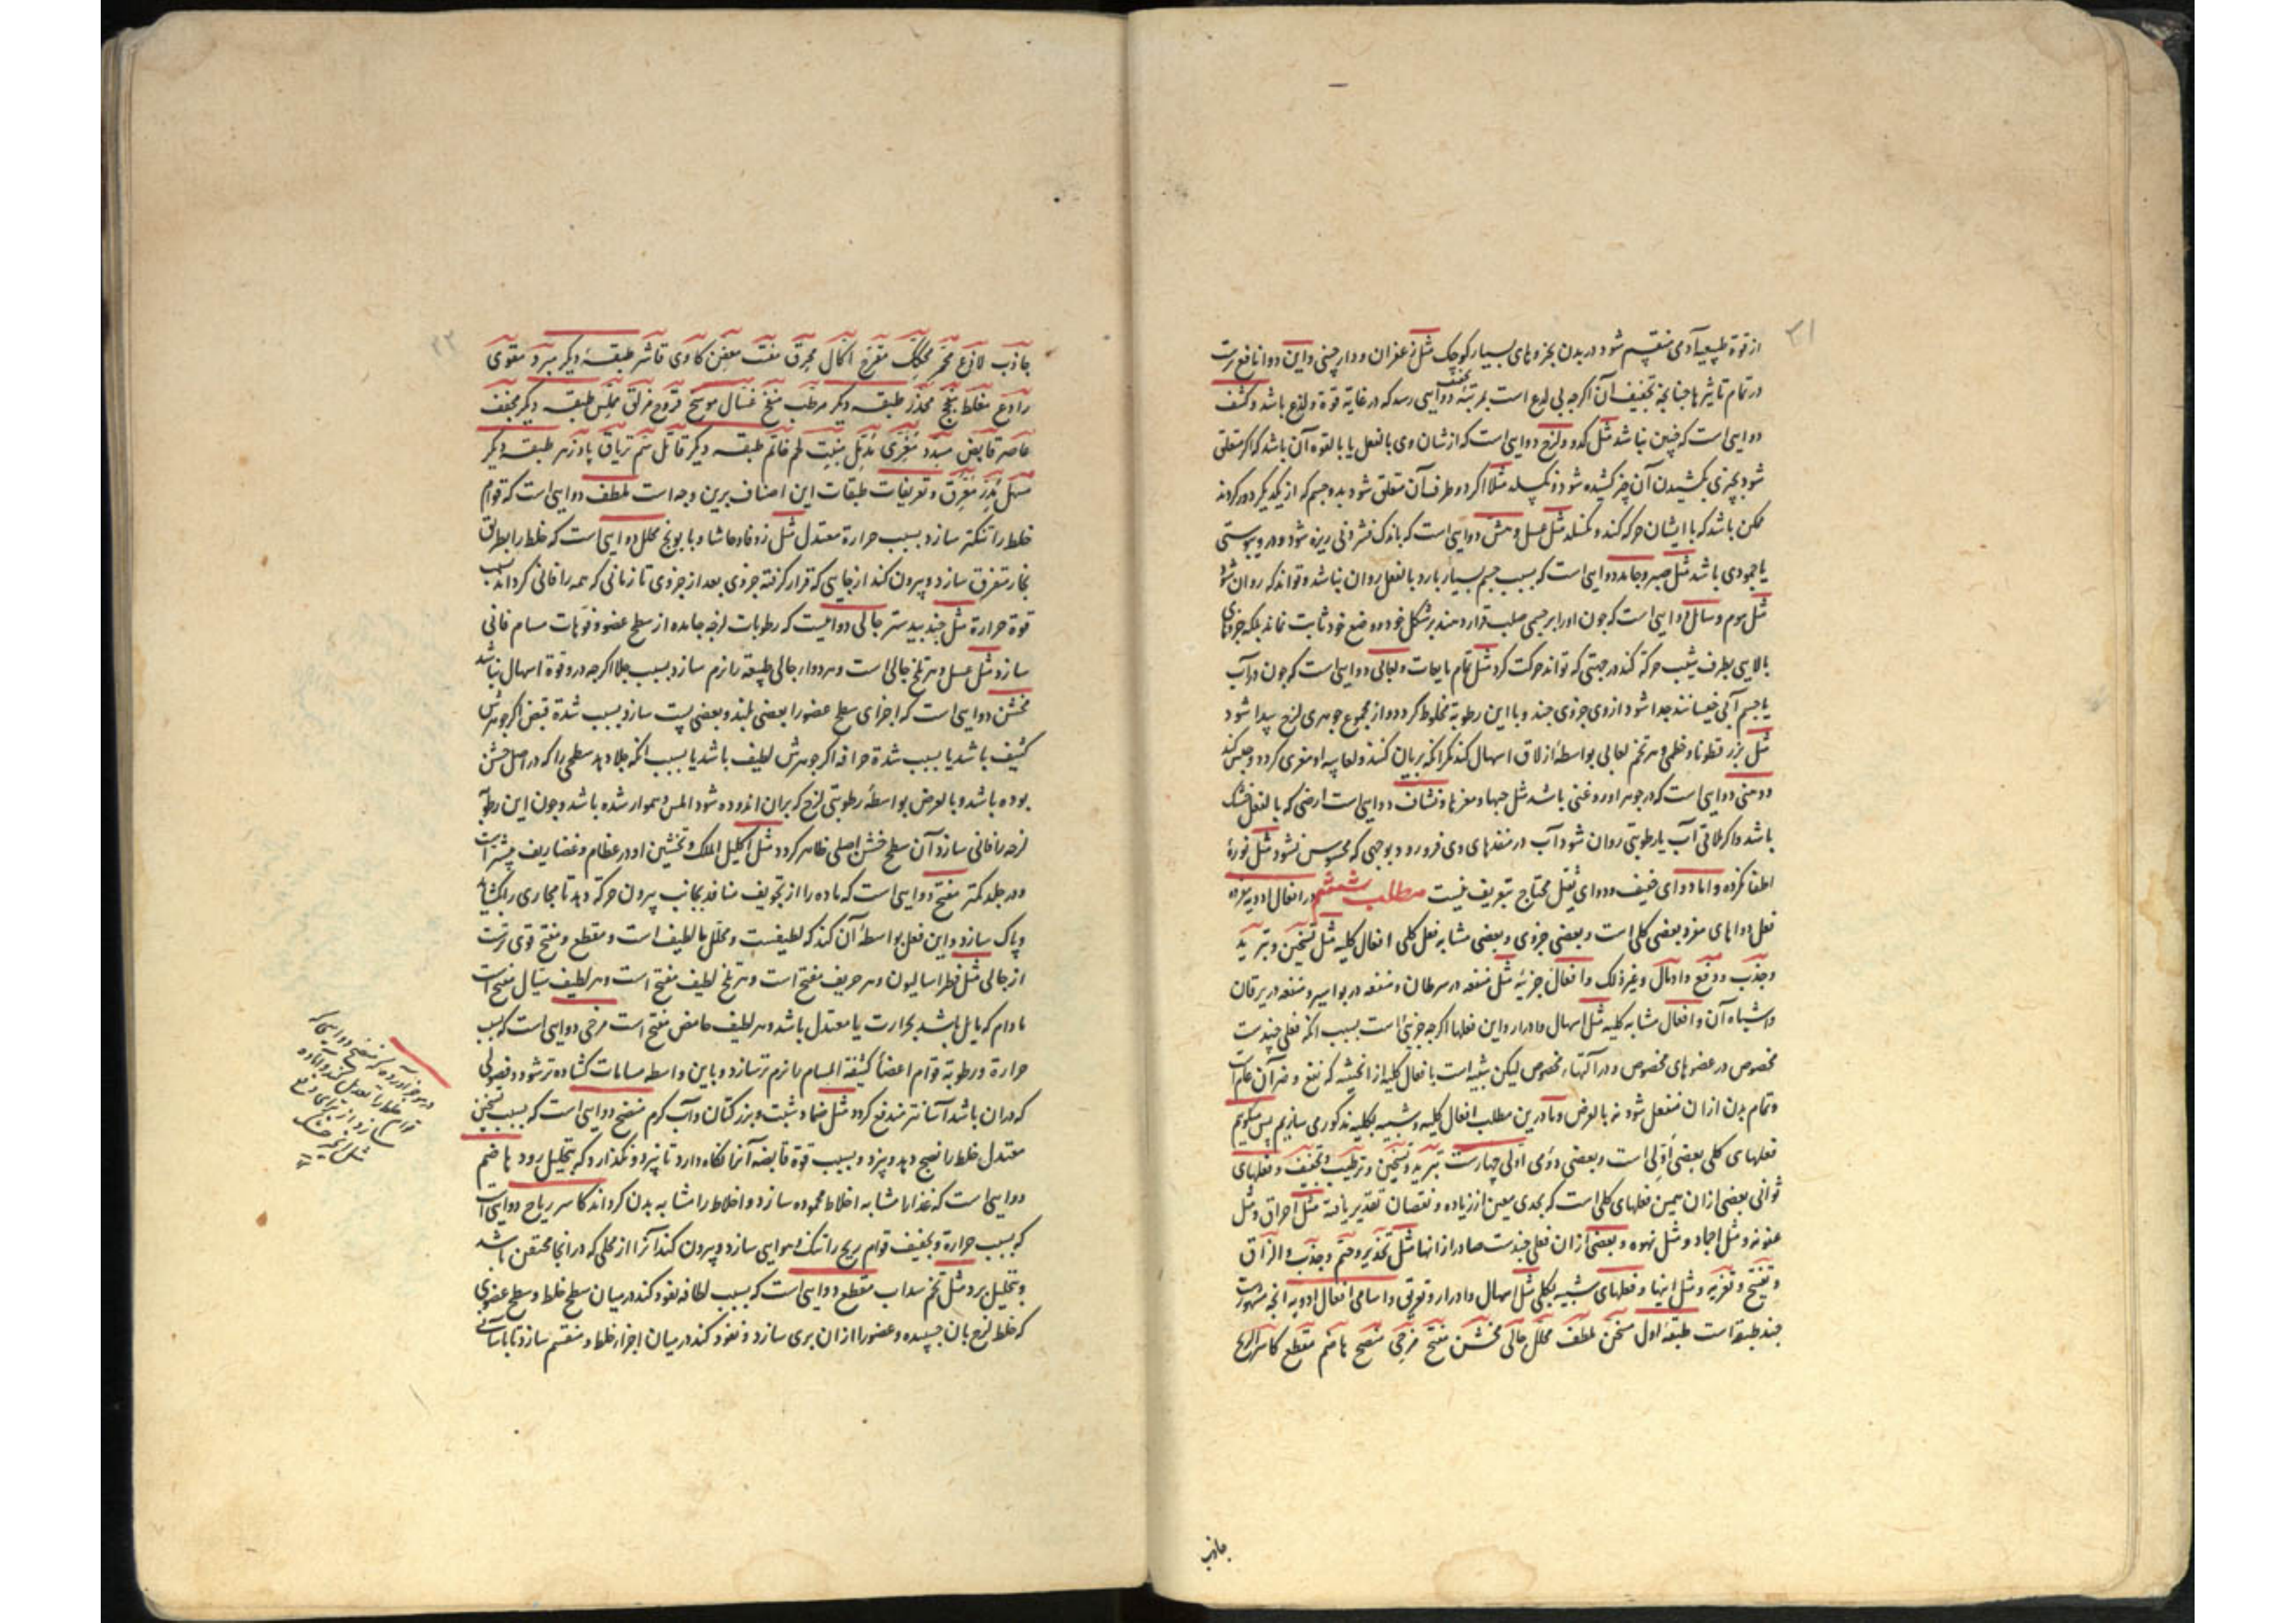 ۳۱
از قوة طبیعیه آدمی منقسم شود در بدن بجزوهای بسیار کوچک مثل زعفران و دارچینی و این دوا نافع‌ترست
در تمام تاثیرها چنانچه تجفیف آن اکرچه بی لدع است بمرتبه دوایی رسد که در غایة قوة و لذع باشد و کثیف
مجفف
دوایی است که چنین نباشد مثل کدو و لزج دوایی است که از شان وی بالفعل یا بالقوه آن باشد که اکر متعلق
شود بچیزی بکشیدن آن چیز کشیده شود و نکسلد مثلا اکر دو طرف آن متعلق شود بدو جسم که از یکدیکر دور کردند
ممکن باشد که با ایشان حرکه کند و نکسلد مثل عسل و هش دوایی است که باندک فشردنی ریزه شود و در و یبوستی
یا جمودی باشد مثل صبر و جامد دوایی است که بسبب جسم بسیار بارد بالفعل روان نباشد و تواند که روان شود
مثل موم و سائل دوایی است که چون اورا بر جسمی صلب قرار دهند بر شکل خود و وضع خود ثابت نماند بلکه جزوهای
بالایی بطرف شیب حرکة کند در جهتی که تواند حرکت کرد مثل تمام مایعات و لعابی دوایی است که چون در آب
یا جسم آبی خیسانند جدا شود از وی جزوی چند و با این رطوبة مخلوط کردد و از مجموع جوهری لزج پیدا شود
مثل بزر قطونا و خطمی و هر تخم لعابی بواسطهٔ ازلاق اسهال کند مکر آنکه بریان کنند و لعابیه او مغری کردد و حبس کند
و دهنی دوایی است که در جوهر او روغنی باشد مثل حبها و مغزها و نشاف دوایی است ارضی که بالفعل خشک
باشد و اکر ملاقی آب یا رطوبتی روان شود آب در منفذهای وی فرو رود بوجهی که محسوس نشود مثل نورهٔ
اطفا نکرده و اما دوای خفیف و دوای ثقیل محتاج بتعریف نیست مطلب ششم در افعال ادویه مفرده
فعل دواهای مفرد بعضی کلی است و بعضی جزوی و بعضی مشابه فعل کلی افعال کلیه مثل تسخین و تبرید
و جذب و دفع و ادمال و غیر ذلک و افعال جزیه مثل منفعه در سرطان و منفعه در بواسیر و منفعه در یرقان
و اشباه آن و افعال مشابه کلیه مثل اسهال و ادرار و این فعلها اکرچه جزیی است بسبب آنکه فعلی چندست
مخصوص در عضوهای مخصوص و در آلتهاء مخصوص لیکن شبیه است بافعال کلیه از آن حیثیه که نفع و ضر آن عام است
و تمام بدن از ان منفعل شود نه بالعرض و ما درین مطلب افعال کلیه و شبیه بکلیه مذکور می سازیم پس میکویم
فعلهای کلی بعضی اولی است و بعضی دومی اولی چهارست تبرید و تسخین و ترطیب و تجفیف و فعلهای
ثوانی بعضی از ان همین فعلهای کلی است که بحدی معین از زیاده و نقصان تقدیر یافته مثل احراق و مثل
عفونه و مثل اجماد و مثل نهوه و بعضی از ان فعلی چندست صادر از انها مثل تخدیر و ختم و جذب و الزاق
و تفتیح و تغریه و مثل اینها و فعلهای شبیه بکلی مثل اسهال و ادرار و تعریق و اسامی افعال ادویه آنچه مشهورست
چند طبقه است طبقهٔ اول مسخن ملطف محلل جالی مخشن مفتح مرخی منضج هاضم مقطع کاسر الریاح
جاذب
۲۲
جاذب لاذع محمر محکک مقرح اکال محرق مفتت معفن کاوی قاشر طبقهٔ دیکر مبرد مقوی
رادع مغلظ مفجج مخدر طبقه دیکر مرطب منفخ غسال موسخ قروح مزلق مملس طبقه دیکر مجفف
عاصر قابض مسدد مغری مدمل منبت لحم خاتم طبقه دیکر قاتل سم تریاق پادزهر طبقه دیکر
مسهل مدر معرق و تعریفات طبقات این اصناف برین وجه است ملطف دوایی است که قوام
خلط را تنکتر سازد بسبب حرارة معتدل مثل زوفا و حاشا و بابونج محلل دوایی است که خلط را بطریق
بخار متفرق سازد و بیرون کند از جایی که قرار کرفته جزوی بعد از جزوی تا زمانی که همه را فانی کرداند بسبب
قوة حرارة مثل جندبیدستر جالی دواییست که رطوبات لزجه جامده از سطح عضو و فوهات مسام فانی
سازد مثل عسل و هر تلخ جالی است و هر دواء جالی طبیعة را نرم سازد بسبب جلا اکرچه در و قوة اسهال نباشد
مخشن دوایی است که اجزای سطح عضو را بعضی بلند و بعضی پست سازد بسبب شدة قبض اکر جوهرش
کثیف باشد یا بسبب شدة حرافه اکر جوهرش لطیف باشد یا بسبب آنکه جلا دهد سطحی را که در اصل خشن
بوده باشد و بالعرض بواسطهٔ رطوبتی لزج که بران اندوده شود املس و هموار شده باشد و چون این رطوبة
لزجه را فانی سازد آن سطح خشن اصلی ظاهر کردد مثل اکلیل الملک و تخشین او در عظام و غضاریف بیشتر است
و در جلد کمتر مفتح دوایی است که ماده را از تجویف منافذ بجانب بیرون حرکة دهد تا مجاری را بکشاید
و پاک سازد و این فعل بواسطهٔ آن کند که لطیفست و محلل یا لطیف است و مقطع و مفتح قوی ترست
از جالی مثل فطراسالیون و هر حریف مفتح است و هر تلخ لطیف مفتح است و هر لطیف سیال مفتح است
مادام که مایل باشد بحرارت یا معتدل باشد و هر لطیف حامض مفتح است مرخی دوایی است که بسبب
حرارة و رطوبة قوام اعضاء کثیفة المسام را نرم تر سازد و باین واسطه مسامات کشاده تر شود و فضولی
که در ان باشد آسانتر مندفع کردد مثل ضماد شبت و بزر کتان و آب کرم منضج دوایی است که بسبب تسخین
معتدل خلط را نضج دهد و پزد و بسبب قوة قابضه آنرا نکاه دارد تا پزد و نکذارد که بتحلیل رود هاضم
دوایی است که غذا را مشابه اخلاط محموده سازد و اخلاط را مشابه بدن کرداند کاسر ریاح دوایی است
که بسبب حرارة و تجفیف قوام ریح را تنک و هوایی سازد و بیرون کند آنرا از محلی که در انجا محتقن باشد
و بتحلیل برد مثل تخم سداب مقطع دوایی است که بسبب لطافه نفوذ کند در میان سطح خلط و سطح عضوی
که خلط لزج بان چسپیده و عضو را از ان بری سازد و نفوذ کند در میان اجزاء خلط و منقسم سازد تا باسانی
در موجز آورده که منضج دوایی است که
قوام خلط را تعدیل کند و آماده
سازد از برای دفع
مثل انجیر خشک